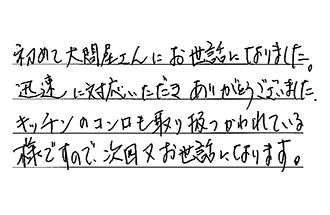 初めて大問屋さんにお世話になりました。
迅速に対応いただき ありがとうございました。
キッチンのコンロも取り扱つかわれている
様ですので、次回又お世話になります。